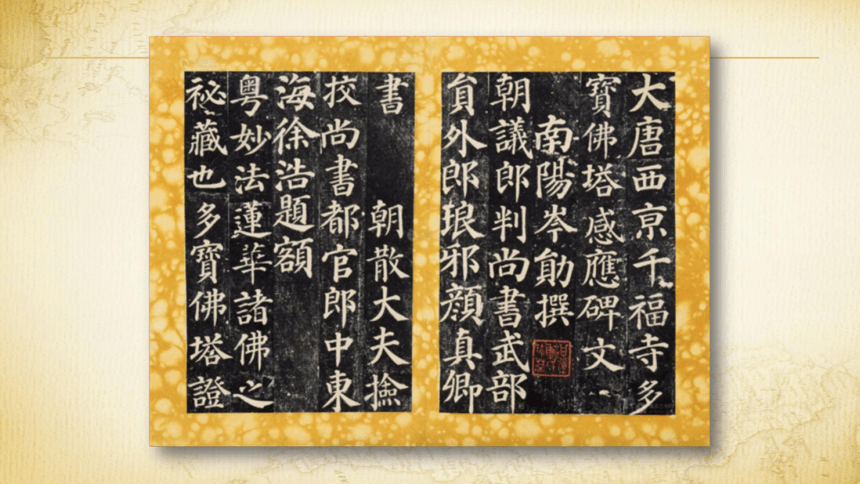 大唐西京千福寺多
寶佛塔感應碑文
南陽岑勛撰
朝議郎判尚書武部
負外郎琅邪顏真卿
書
朝散大夫撿
挍尚書都官郎中東
海徐浩題額
粤妙法蓮華諸佛之
祕藏也多寶佛塔證